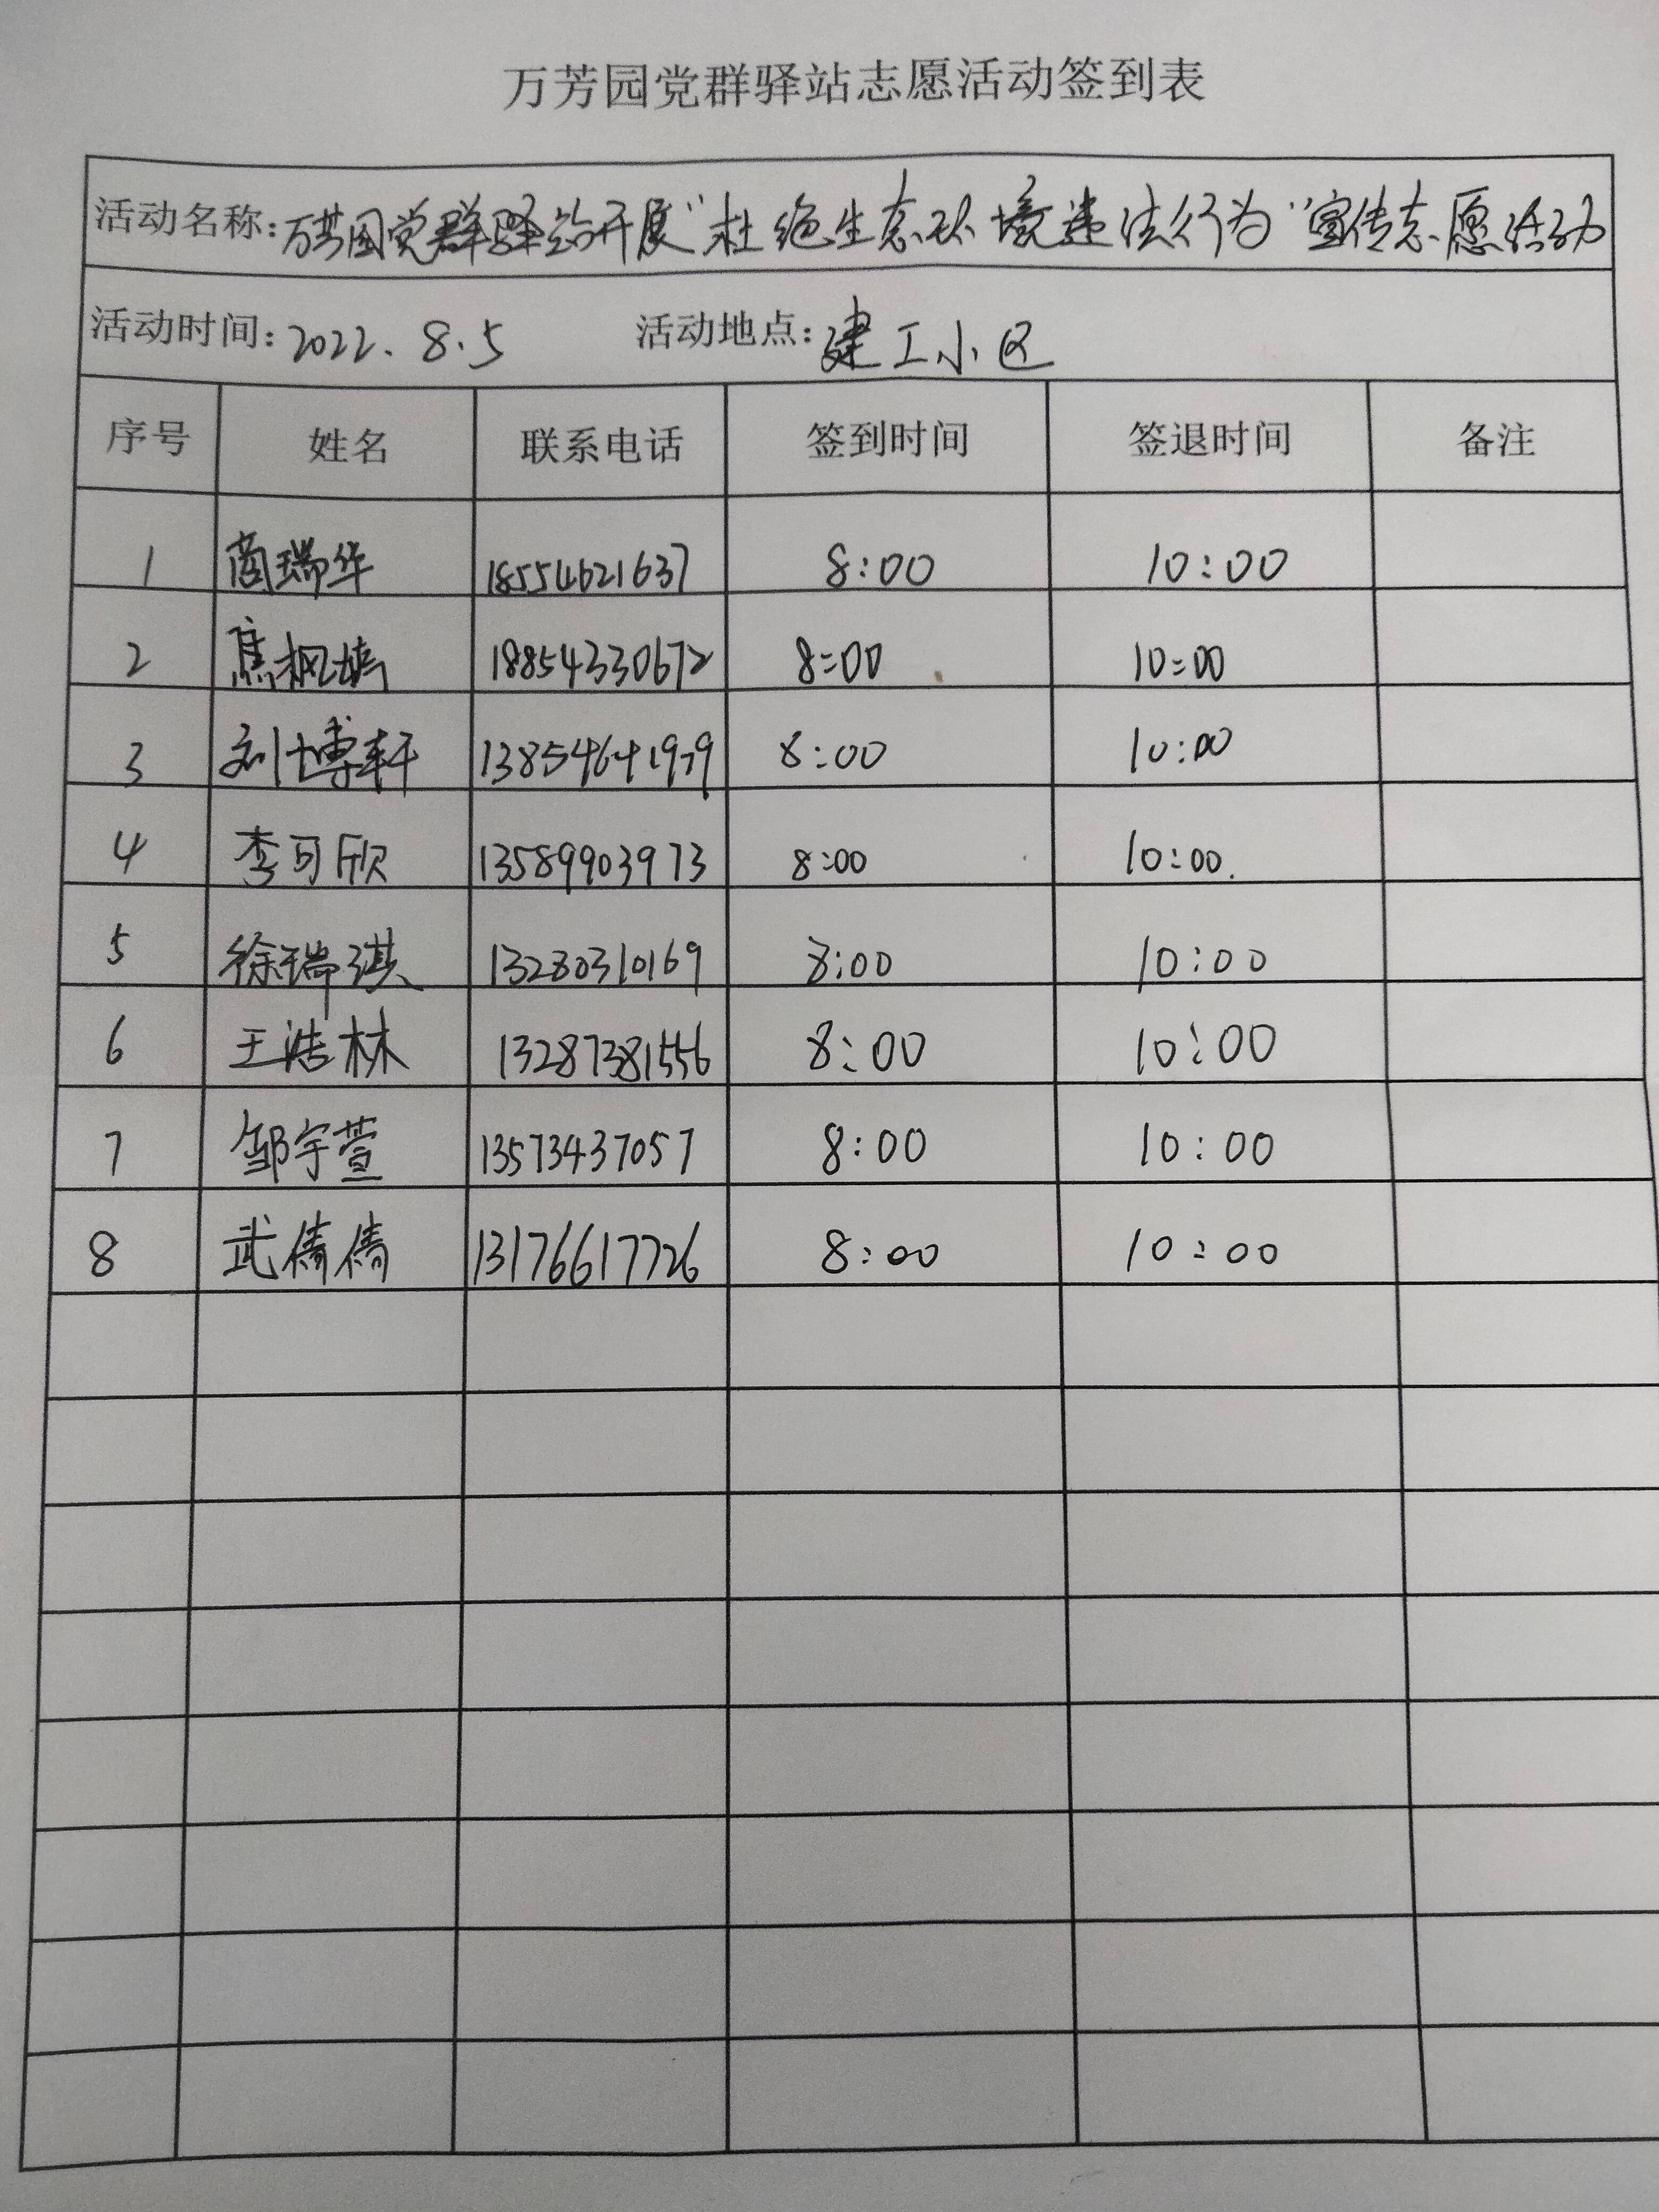 万芳园党群驿站志愿活动签到表
活动名称:万芳园党群驿站开展“杜绝生态环境违法行为”宣传志愿活动
活动时间:2022.8.5 活动地点:建工小区
序号 姓名 联系电话 签到时间 签退时间 备注
1 商瑞华 18554621637 8:00 10:00
2 焦枫 18854330672 8:00 10:00
3 刘博轩 13854641979 8:00 10:00
4 李可欣 13589903973 8:00 10:00.
5 徐瑞琪 13280310169 8:00 10:00
6 王浩林 13287381556 8:00 10:00
7 邹宇萱 13573437057 8:00 10:00
8 武倩倩 13176617726 8:00 10:00